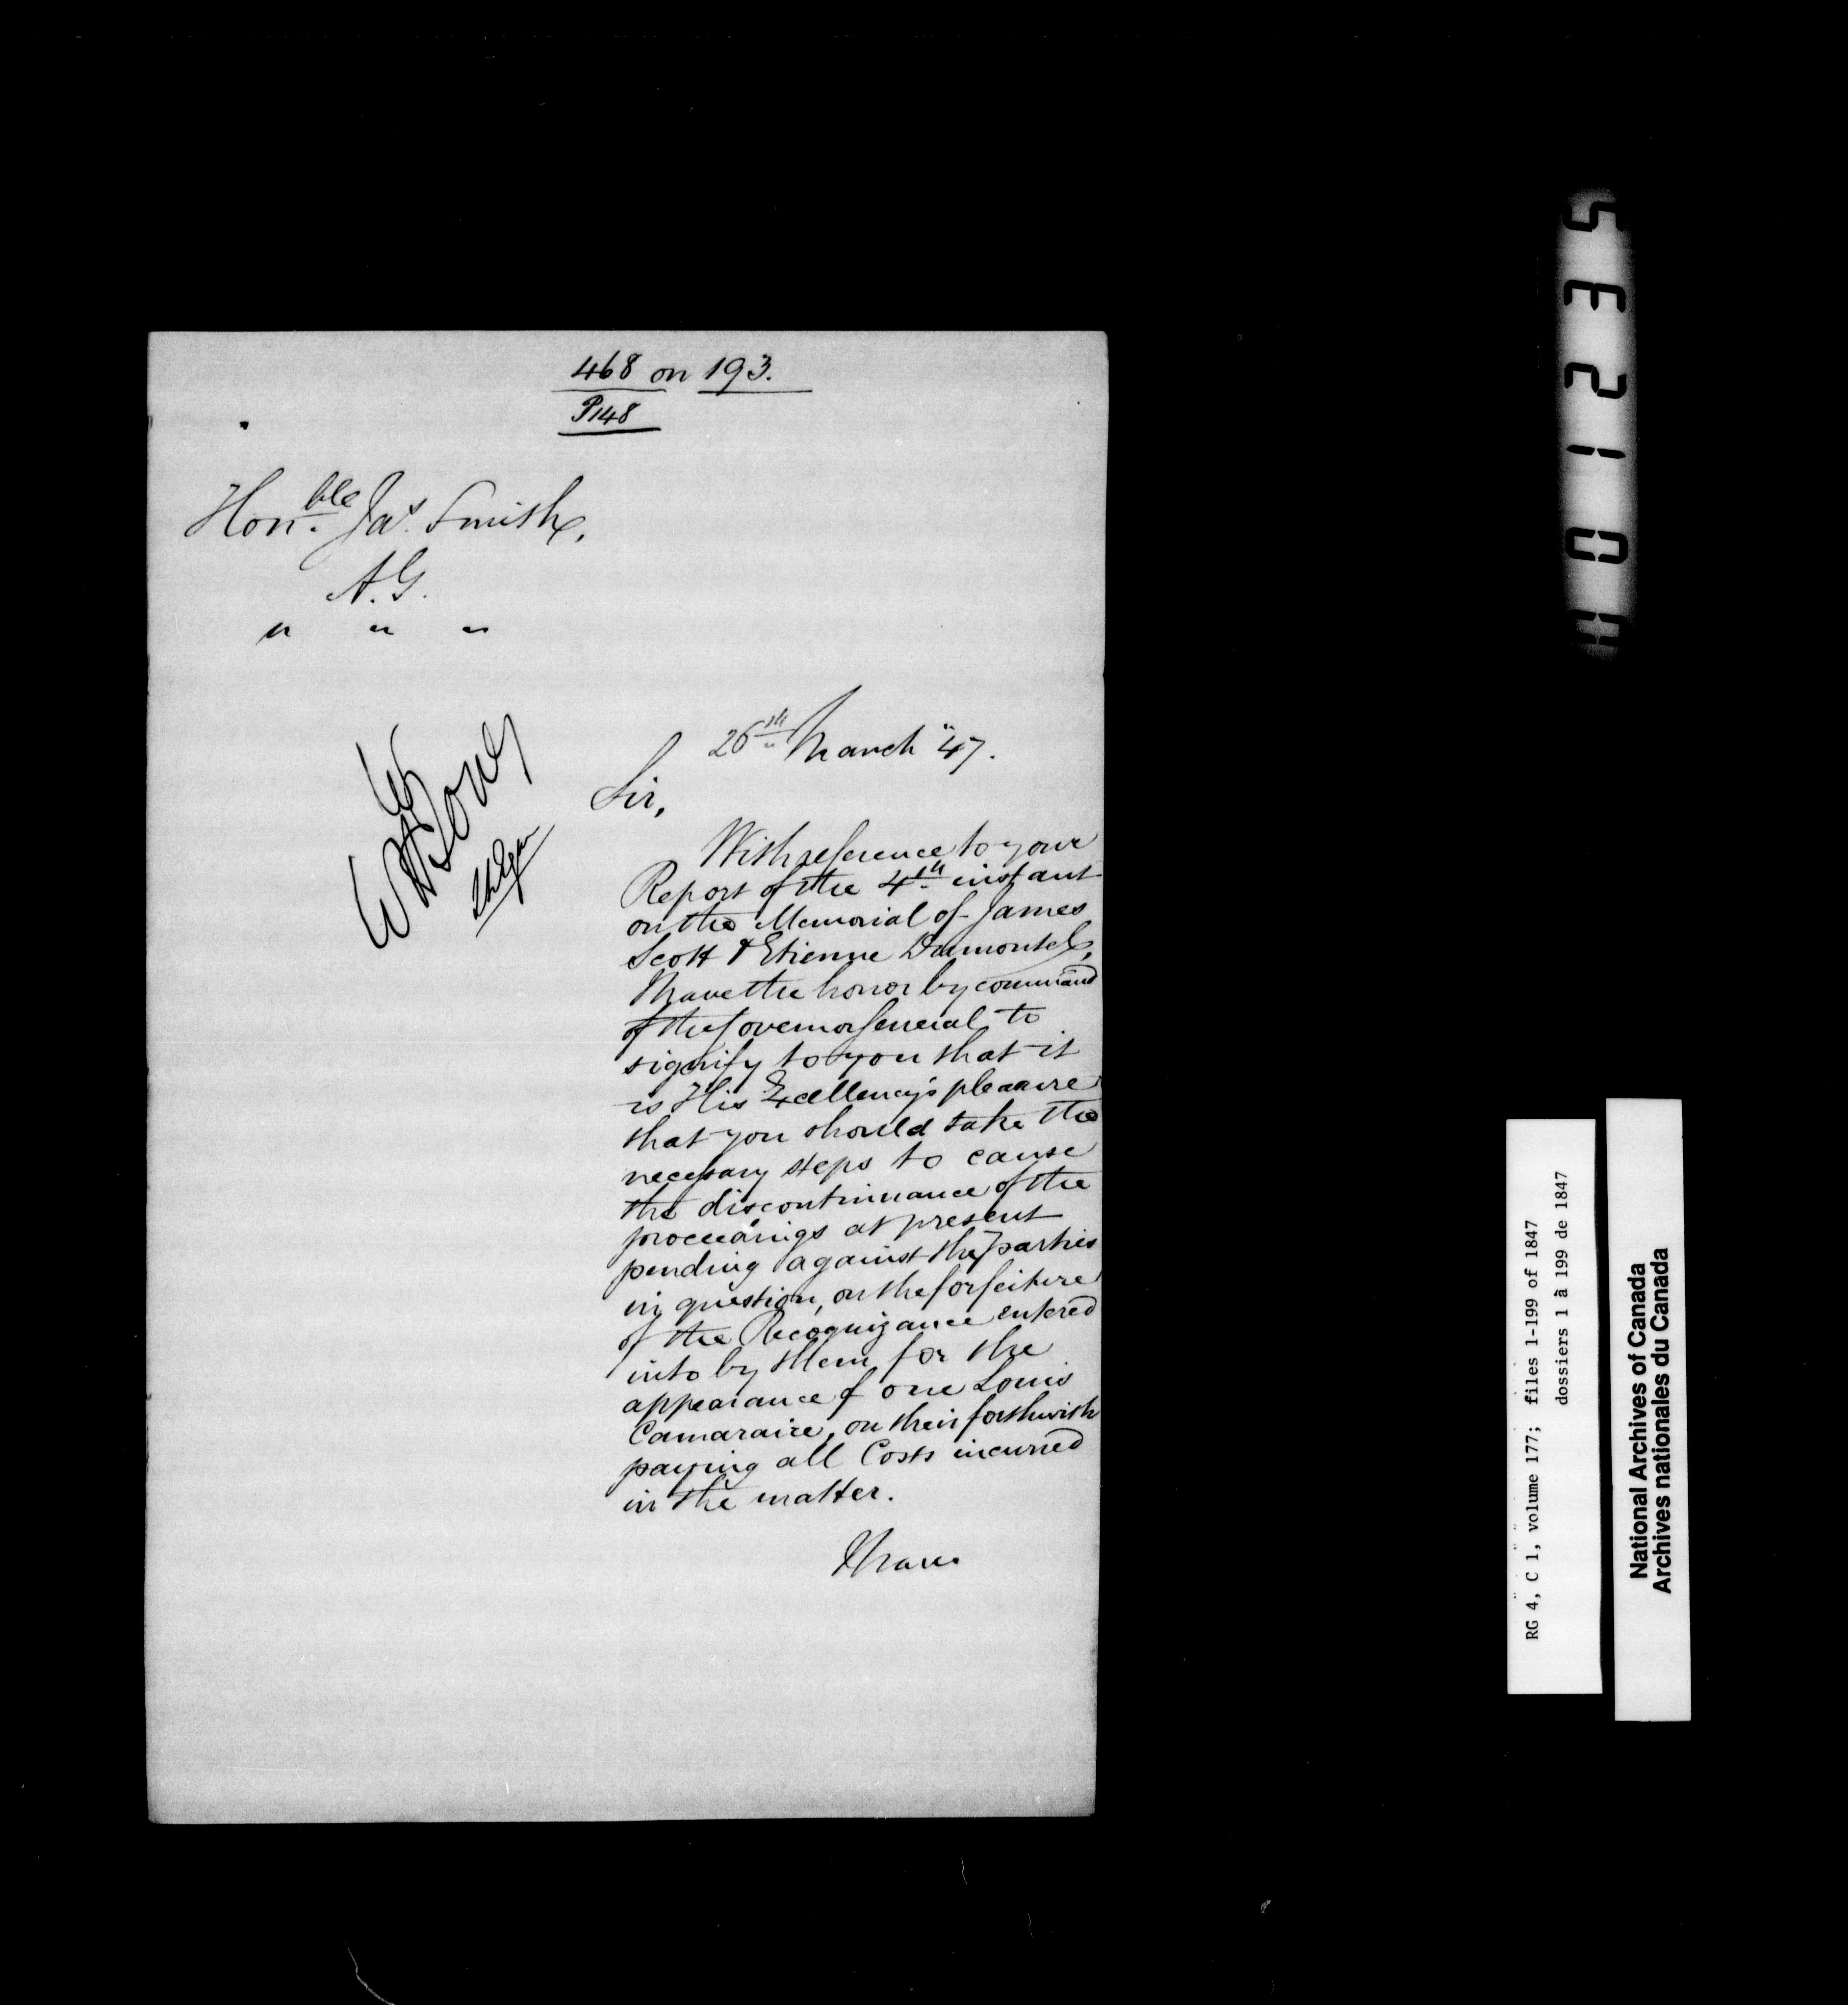 468 on 193.
P148
Honble Jas. Smith,
A.G.
" " "
26th March "47.
Sir,
With reference to your
Report of the 4th instant
on the Memorial of James
Scott & Etienne Dumontel,
I have the honor by command
of the Governor General to
signify to you that it
is His Excellency's pleasure
that you should take the
necessary steps to cause
the discontinuance of the
proceedings at present
pending against the parties
in question, on the forfeiture
of the Recognizance entered
into by them for the
appearance of one Louis
Camaraire, on their forthwith
paying all Costs incurred
in the matter.
I have
H01235
RG 4, C 1, volume 177; files 1-199 of 1847
dossiers 1 à 199 de 1847
National Archives of Canada
Archives nationales du Canada